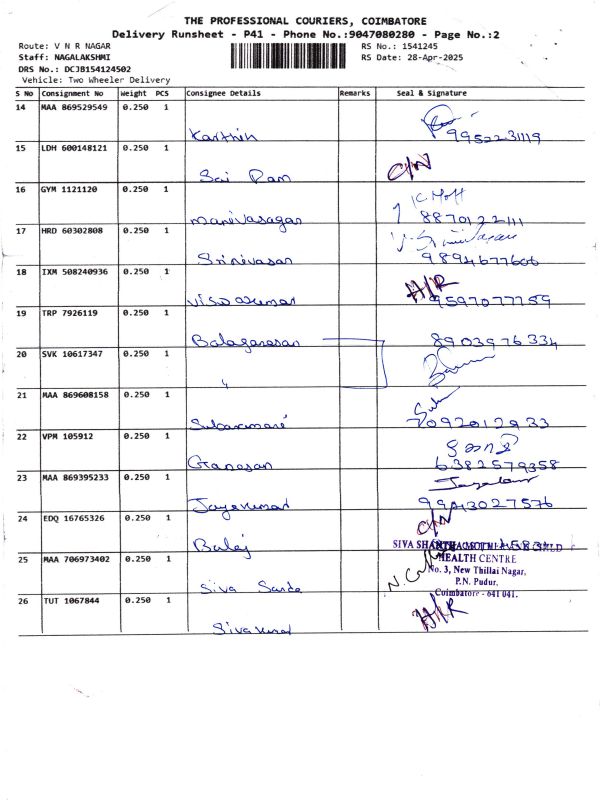 THE PROFESSIONAL COURIERS, COIMBATORE
Delivery Runsheet - P41 - Phone No.:9047080280 - Page No.:2
Route: V N R NAGAR RS No.: 1541245
Staff: NAGALAKSHMI RS Date: 28-Apr-2025
DRS No.: DCJB154124502
Vehicle: Two Wheeler Delivery
S No Consignment No Weight PCS Consignee Details Remarks Seal & Signature
14 MAA 869529549 0.250 1
Karthik 9952231119
15 LDH 600148121 0.250 1
Sai Ram C/N
16 GYM 1121120 0.250 1
Manivasagar 8870122111
17 HRD 60302808 0.250 1
Srinivasan 9894677606
18 IXM 508240936 0.250 1 H/R
9597077759
19 TRP 7926119 0.250 1
Balaganesan 8903976334
20 SVK 10617347 0.250 1
21 MAA 869608158 0.250 1
7092012933
22 VPM 105912 0.250 1
Ganesan 6382579358
23 MAA 869395233 0.250 1
Jayakumar 9943027576
24 EDQ 16765326 0.250 1 C/N
Balaj
25 MAA 706973402 0.250 1 HEALTH CENTRE
No. 3, New Thillai Nagar,
P.N. Pudur,
Siva Coimbatore - 641 041.
26 TUT 1067844 0.250 1 H/R
Sivakumar